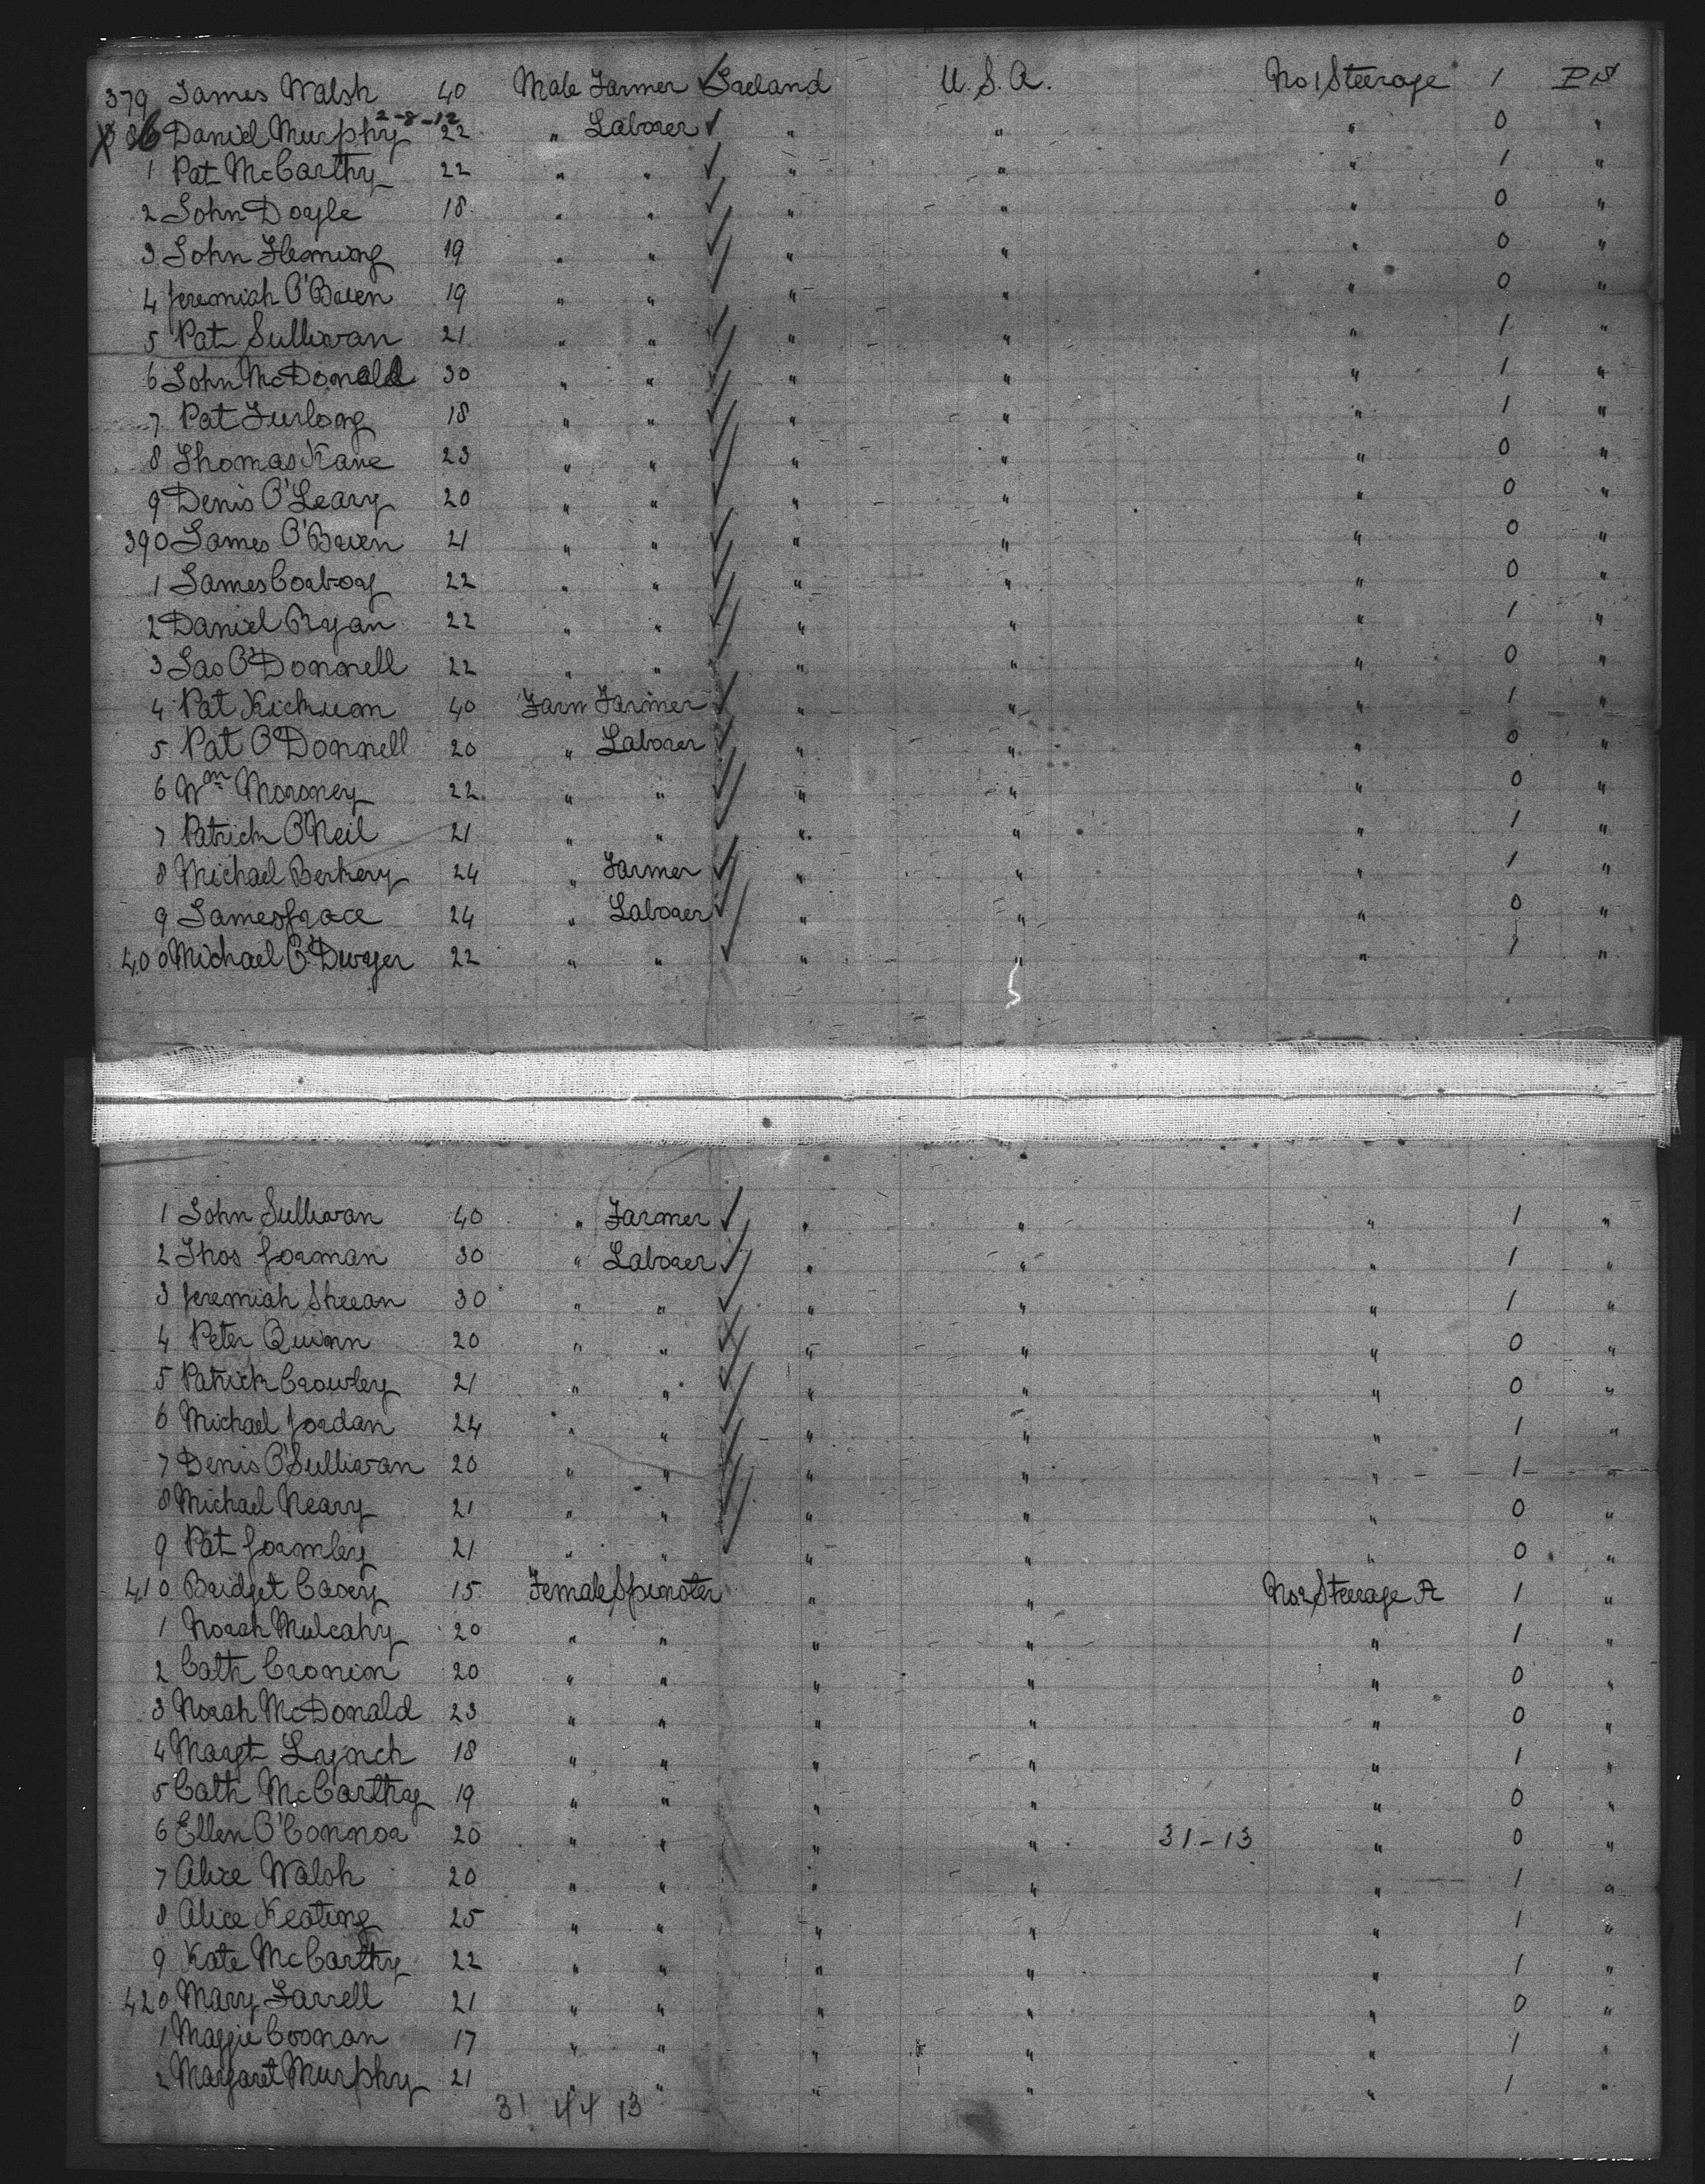 379 James Walsh 40 Male Farmer ✓ Ireland U.S.A. No 1 Steerage 1 PS
2-8-12
X 86 Daniel Murphy 22 " Laborer ✓ " " " 0 "
1 Pat McCarthy 22 " " ✓ " " " 1 "
2 John Doyle 18 " " ✓ " " " 0 "
3 John Fleming 19 " " ✓ " " " 0 "
4 Jeremiah O'Brien 19 " " ✓ " " " 0 "
5 Pat Sullivan 21 " " ✓ " " " 1 "
6 John McDonald 30 " " ✓ " " " 1 "
7 Pat Furlong 18 " " ✓ " " " 1 "
8 Thomas Kane 23 " " ✓ " " " 0 "
9 Denis O'Leary 20 " " ✓ " " " 0 "
390 James O'Brien 21 " " ✓ " " " 0 "
1 James Corboy 22 " " ✓ " " " 0 "
2 Daniel Ryan 22 " " ✓ " " " 1 "
3 Jas O'Donnell 22 " " " " " 0 "
4 Pat 40 Farm Farmer ✓ " " " 1 "
5 Pat O'Donnell 20 " Laborer ✓ " " " 0 "
6 Wm Moroney 22 " " ✓ " " " 0 "
7 Patrick O'Neil 21 " " ✓ " " " 1 "
8 Michael Berkery 24 " Farmer ✓ " " " 1 "
9 James Grace 24 " Laborer ✓ " " " 0 "
400 Michael O'Dwyer 22 " " ✓ " " " 1 "
1 John Sullivan 40 " Farmer ✓ " " " 1 "
2 Thos Gorman 30 " Laborer ✓ " " " 1 "
3 Jeremiah Sheean 30 " " ✓ " " " 1 "
4 Peter Quinn 20 " " ✓ " " " 0 "
5 Patrick Crowley 21 " " ✓ " " " 0 "
6 Michael Jordan 24 " " ✓ " " " 1 "
7 Denis O'Sullivan 20 " " ✓ " " " 1 "
8 Michael Neary 21 " " ✓ " " " 0 "
9 Pat Gormley 21 " " " " " 0 "
410 Bridget Casey 15 Female Spinster " " No 2 Steerage A 1 "
1 Norah Mulcahy 20 " " " " " 1 "
2 Cath Cronin 20 " " " " " 0 "
3 Norah McDonald 23 " " " " " 0 "
4 Margt Lynch 18 " " " " " 1 "
5 Cath McCarthy 19 " " " " " 0 "
6 Ellen O'Connor 20 " " " " 31-13 " 0 "
7 Alice Walsh 20 " " " " " 1 "
8 Alice Keating 25 " " " " " 1 "
9 Kate McCarthy 22 " " " " " 1 "
420 Mary Farrell 21 " " " " " 0 "
1 Maggie Coonan 17 " " " " " 1 "
2 Margaret Murphy 21 " " " " " 1 "
31 44 13